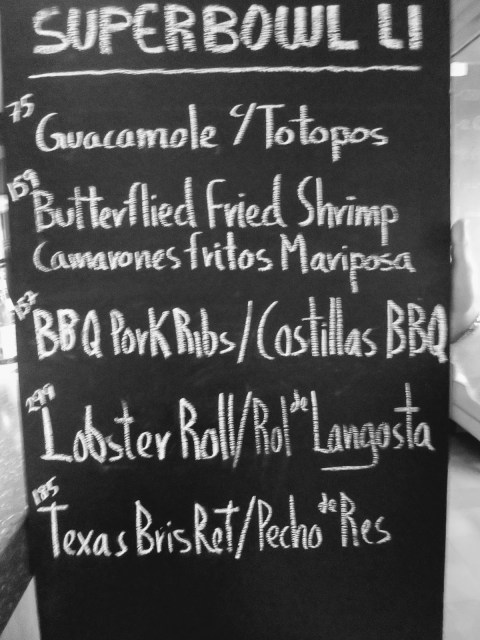 SUPERBOWL LI
75
Guacamole c/Totopos
159
Butterflied Fried Shrimp
Camarones fritos Mariposa
157
BBQ Pork Ribs/Costillas BBQ
299
Lobster Roll/Rol de Langosta
185
Texas Brisket/Pecho de Res